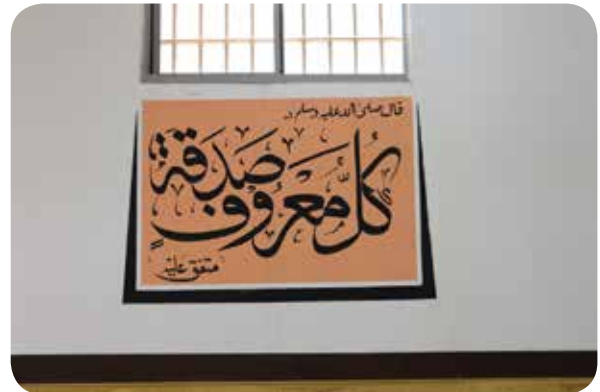 قال صلى الله عليه وسلم
كُلُّ مَعْرُوفٍ صَدَقَةٌ
متفق عليه